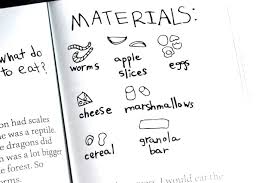 MATERIALS:
what do
to eat?
worms
apple
slices
eggs
cheese
marshmallows
cereal
granola
bar
on had scales
he was a reptile.
e dragons did
n was a lot bigger
e forest. So
orms.
I would eat the